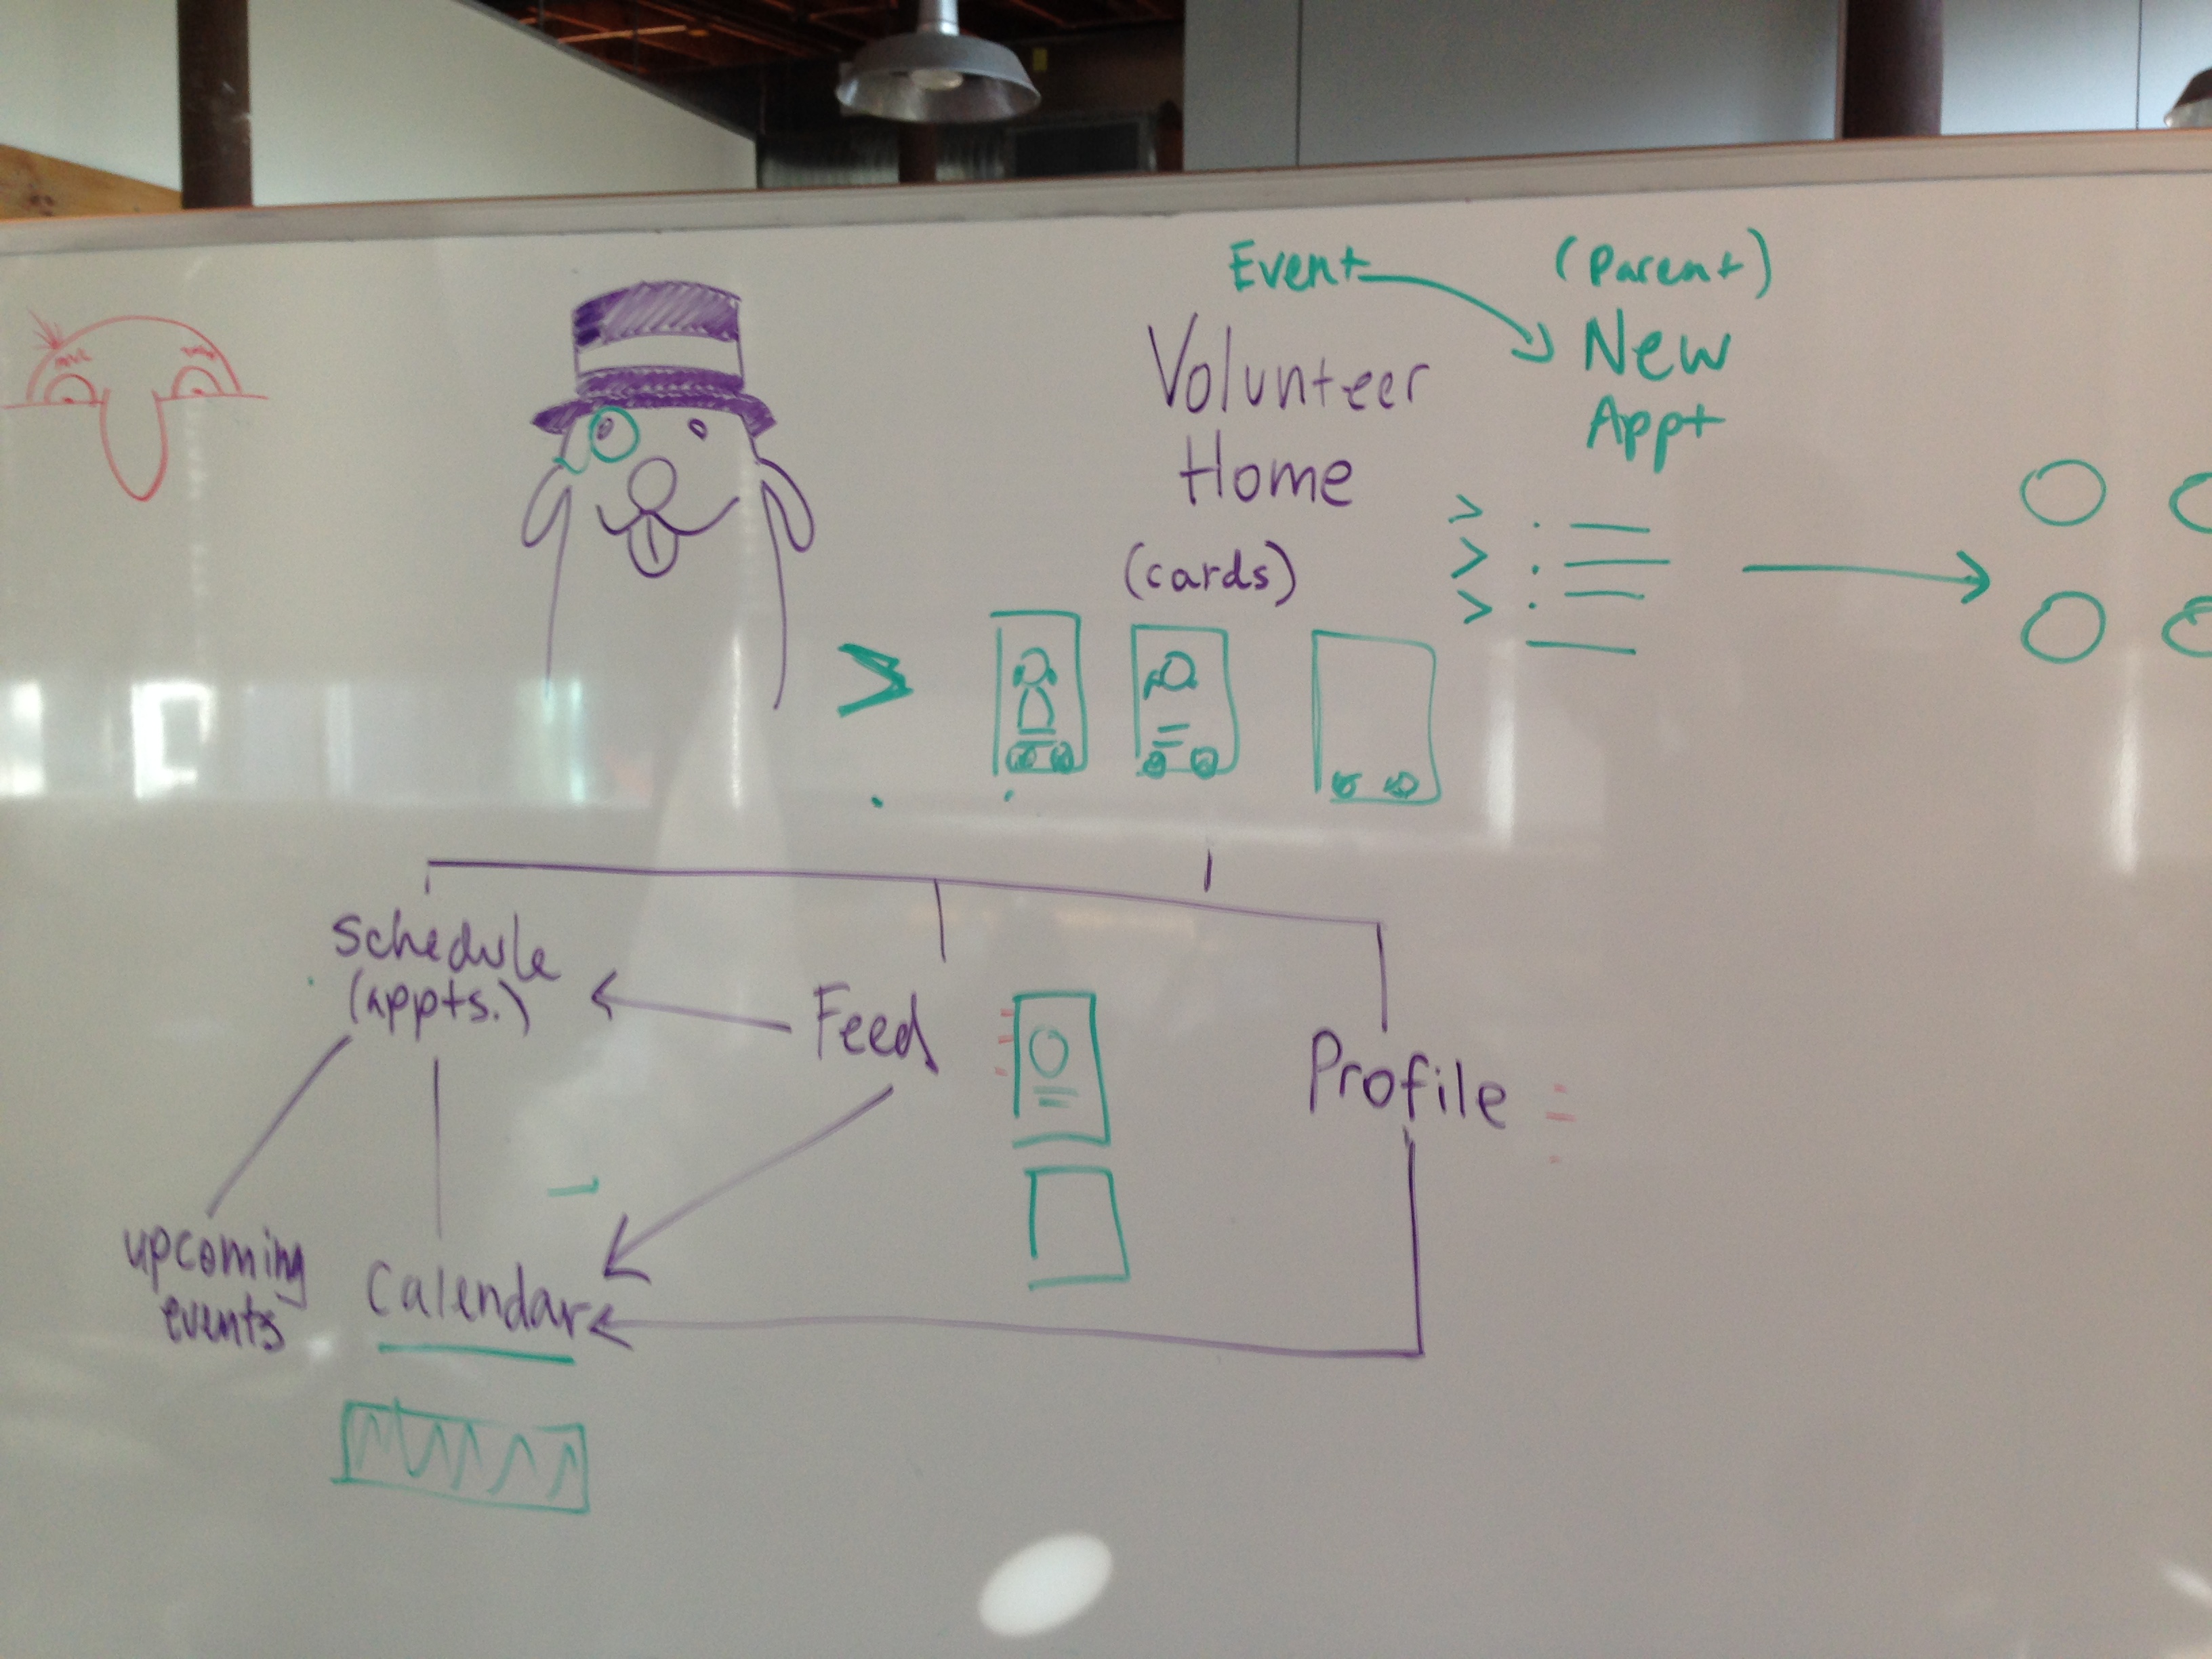 Event
(Parent)
New
Appt
Volunteer
Home
(cards)
schedule
(appts.)
Feed
Profile
upcoming
events
Calendar